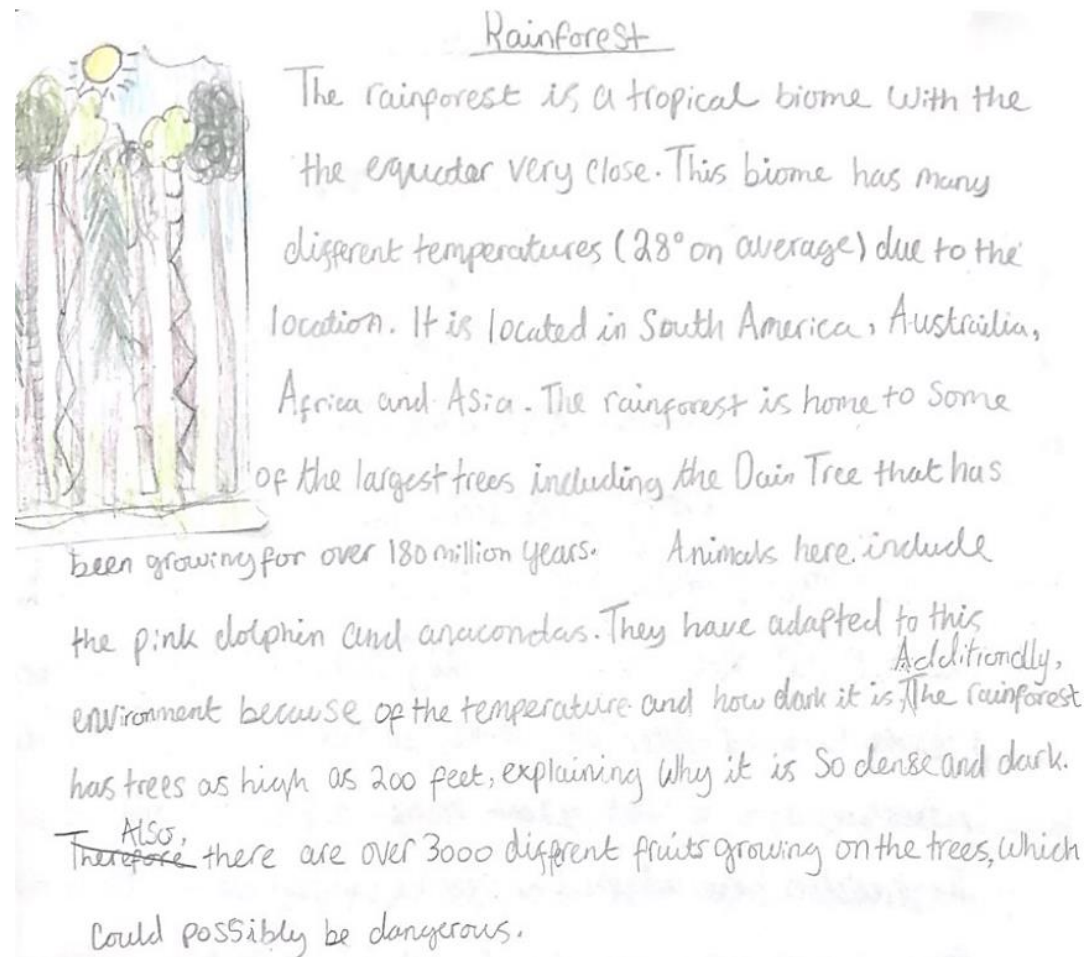 Rainforest
The rainforest is a tropical biome with the
the equator very close. This biome has many
different temperatures (28° on average) due to the
location. It is located in South America, Austrailia,
Africa and Asia. The rainforest is home to some
of the largest trees including the Dain Tree that has
been growing for over 180 million years. Animals here include
the pink dolphin and anacondas. They have adapted to this
Additionally,
environment because of the temperature and how dark it is. The rainforest
has trees as high as 200 feet, explaining why it is so dense and dark.
Also,
Therefore there are over 3000 different fruits growing on the trees, which
could possibly be dangerous.